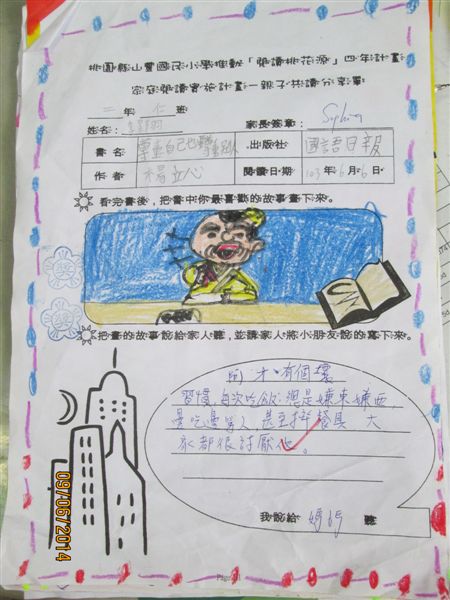 桃園縣山豐國民小學推動「閱讀桃花源」四年計畫
家庭閱讀實施計畫—親子共讀分享單
二年仁班
姓名: 家長簽章: Sophia
書名 尊重自己也尊重別人 出版社 國語日報
作者 木易立心 閱讀日期 103年6月6日
看完書後,把書中你最喜歡的故事畫下來。
把畫的故事說給家人聽,並請家人將小朋友說的寫下來。
阿才有個壞
習慣,每次吃飯總是嫌東嫌西,
邊吃邊罵人,甚至摔餐具,大
家都很討厭他。
我說給 媽媽 聽
09/06/2014